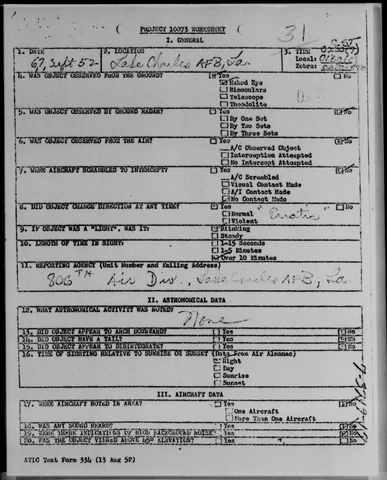 ( PROJECT 10073 WORKSHEET )
31
I. GENERAL
1. DATE
6/7, Sept 52
2. LOCATION
Lake Charles AFB, La.
3. TIME
Local:
Zebra:
4. WAS OBJECT OBSERVED FROM THE GROUND? Yes No
Naked Eye
Binoculars
Telescope
Theodolite
5. WAS OBJECT OBSERVED BY GROUND RADAR? Yes No
By One Set
By Two Sets
By Three Sets
6. WAS OBJECT OBSERVED FROM THE AIR? Yes No
A/C Observed Object
Interception Attempted
No Intercept Attempted
7. WERE AIRCRAFT SCRAMBLED TO INTERCEPT? Yes No
A/C Scrambled
Visual Contact Made
A/I Contact Made
No Contact Made
8. DID OBJECT CHANGE DIRECTION AT ANY TIME? Yes No
Normal "Erratic"
Violent
9. IF OBJECT WAS A "LIGHT", WAS IT: Blinking
Steady
10. LENGTH OF TIME IN SIGHT: 1-15 Seconds
1-5 Minutes
Over 10 Minutes
11. REPORTING AGENCY (Unit Number and Mailing Address)
806TH Air Div., Lake Charles AFB, La
II. ASTRONOMICAL DATA
12. WHAT ASTRONOMICAL ACTIVITY WAS NOTED?
None
13. DID OBJECT APPEAR TO ARCH DOWNWARD? Yes No
14. DID OBJECT HAVE A TAIL? Yes No
15. DID OBJECT APPEAR TO DISINTEGRATE? Yes No
16. TIME OF SIGHTING RELATIVE TO SUNRISE OR SUNSET (Data From Air Almanac)
Night
Day
Sunrise
Sunset
III. AIRCRAFT DATA
17. WERE AIRCRAFT NOTED IN AREA? Yes No
One Aircraft
More Than One Aircraft
18. WAS ANY SOUND HEARD? Yes No
19. WERE THERE INDICATIONS OF HIGH BACKGROUND NOISE? Yes No
20. WAS THE OBJECT VIEWED ABOVE 45° ELEVATION? Yes No
ATIC Test Form 334 (13 Aug 52)